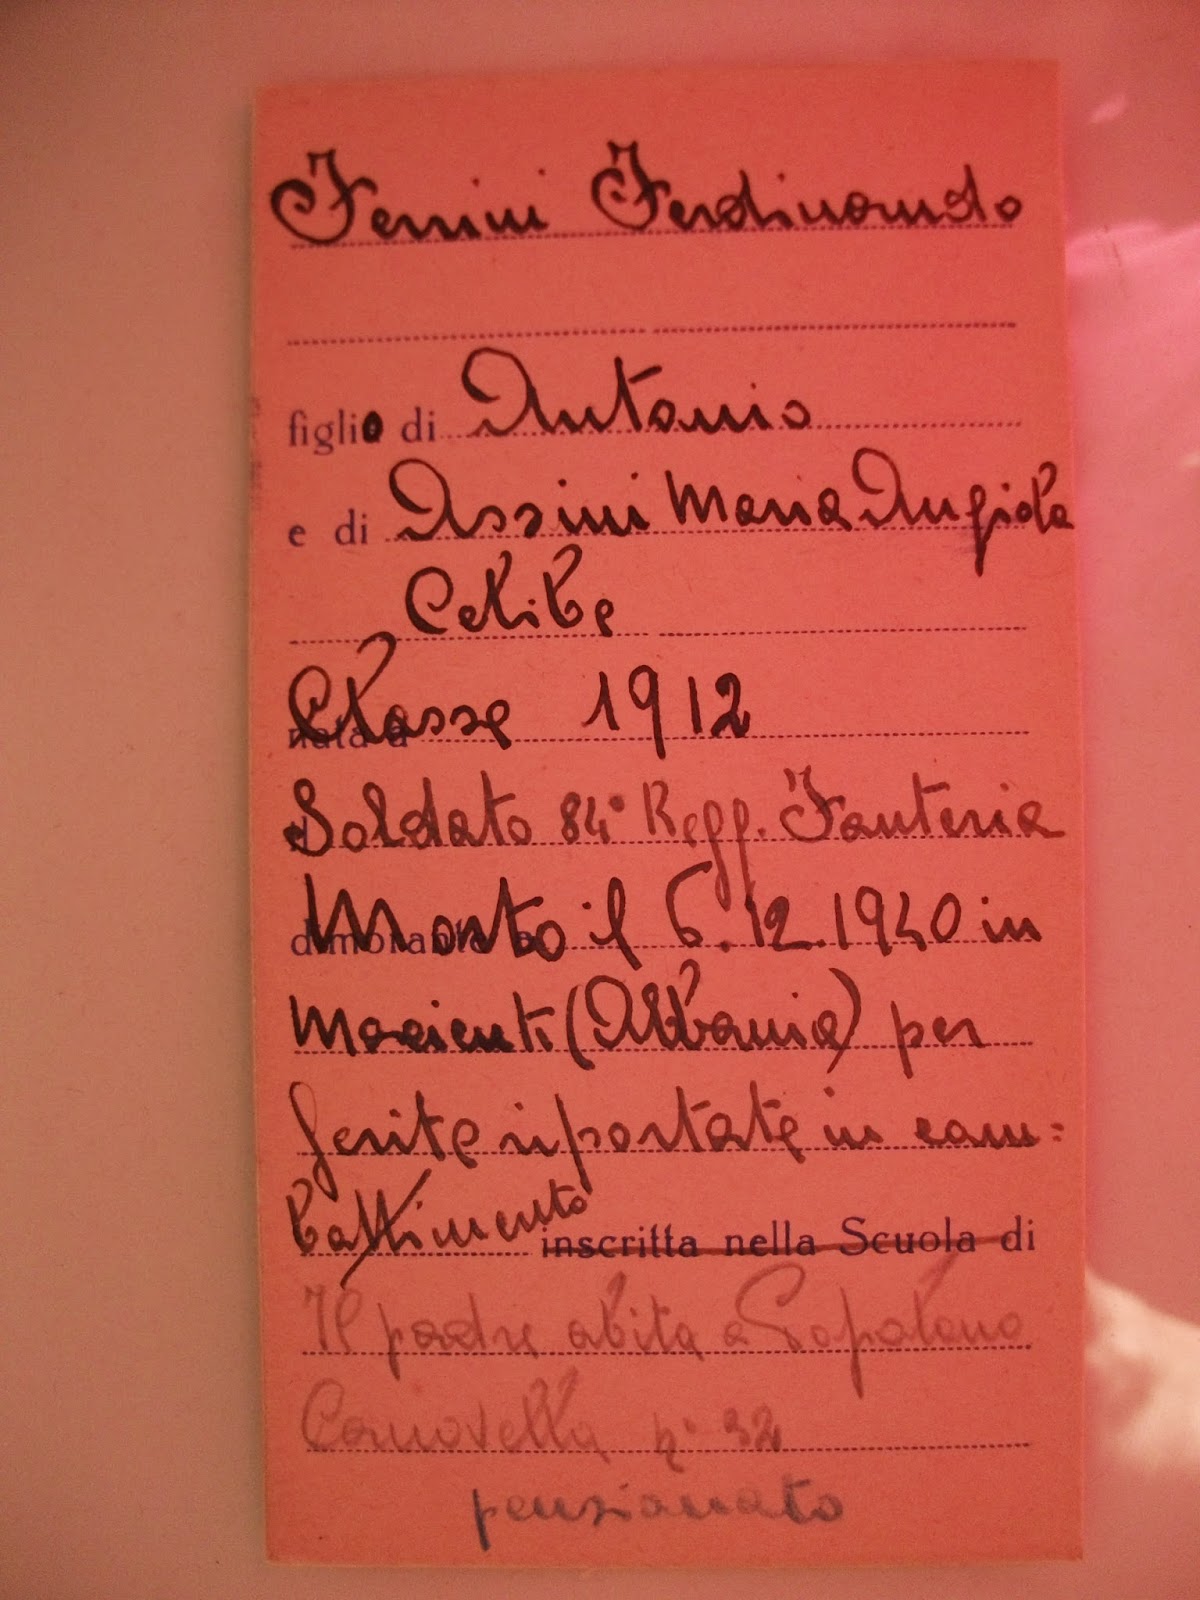 Ferrini Ferdinando
figlio di Antonio
e di Assini Maria Angiola
Celibe
nata a Classe 1912
Soldato 84° Regg. Fanteria
dimorante a Morto il 6.12.1940 in
(Albania) per
ferite riportate in com=
battimento inscritta nella Scuola di
Il padre abita a
n° 32
pensionato